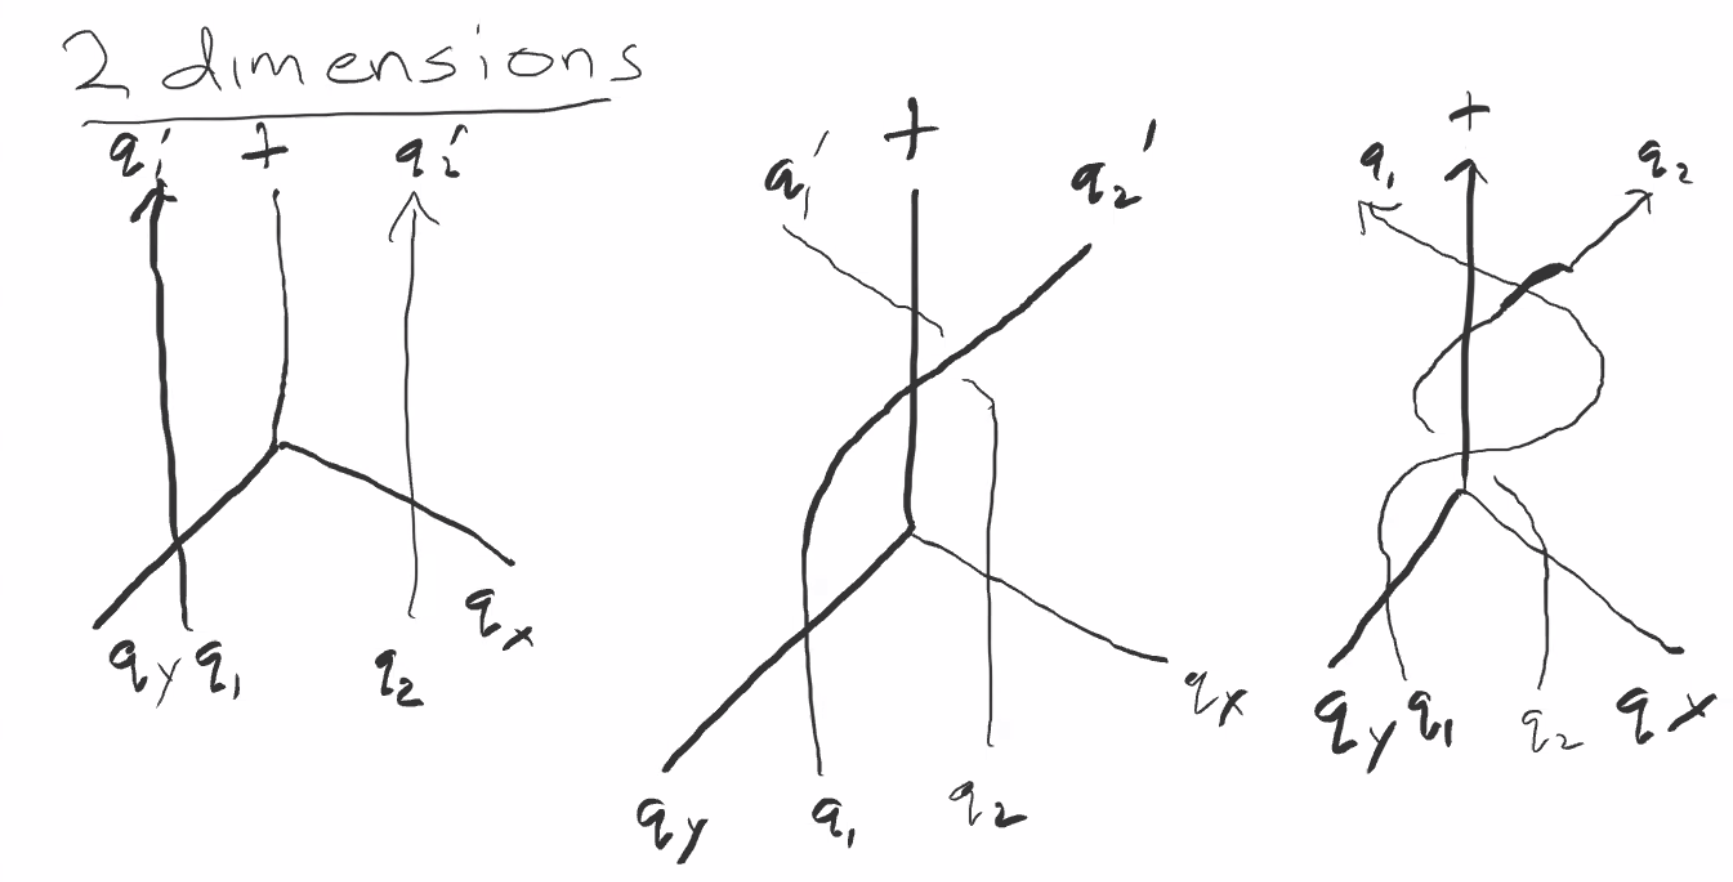 2 dimensions
q₁' + q₂'
qy q₁ q₂ qx
q₁' + q₂'
qy q₁ q₂ qx
+
q₁ q₂
qy q₁ q₂ qx